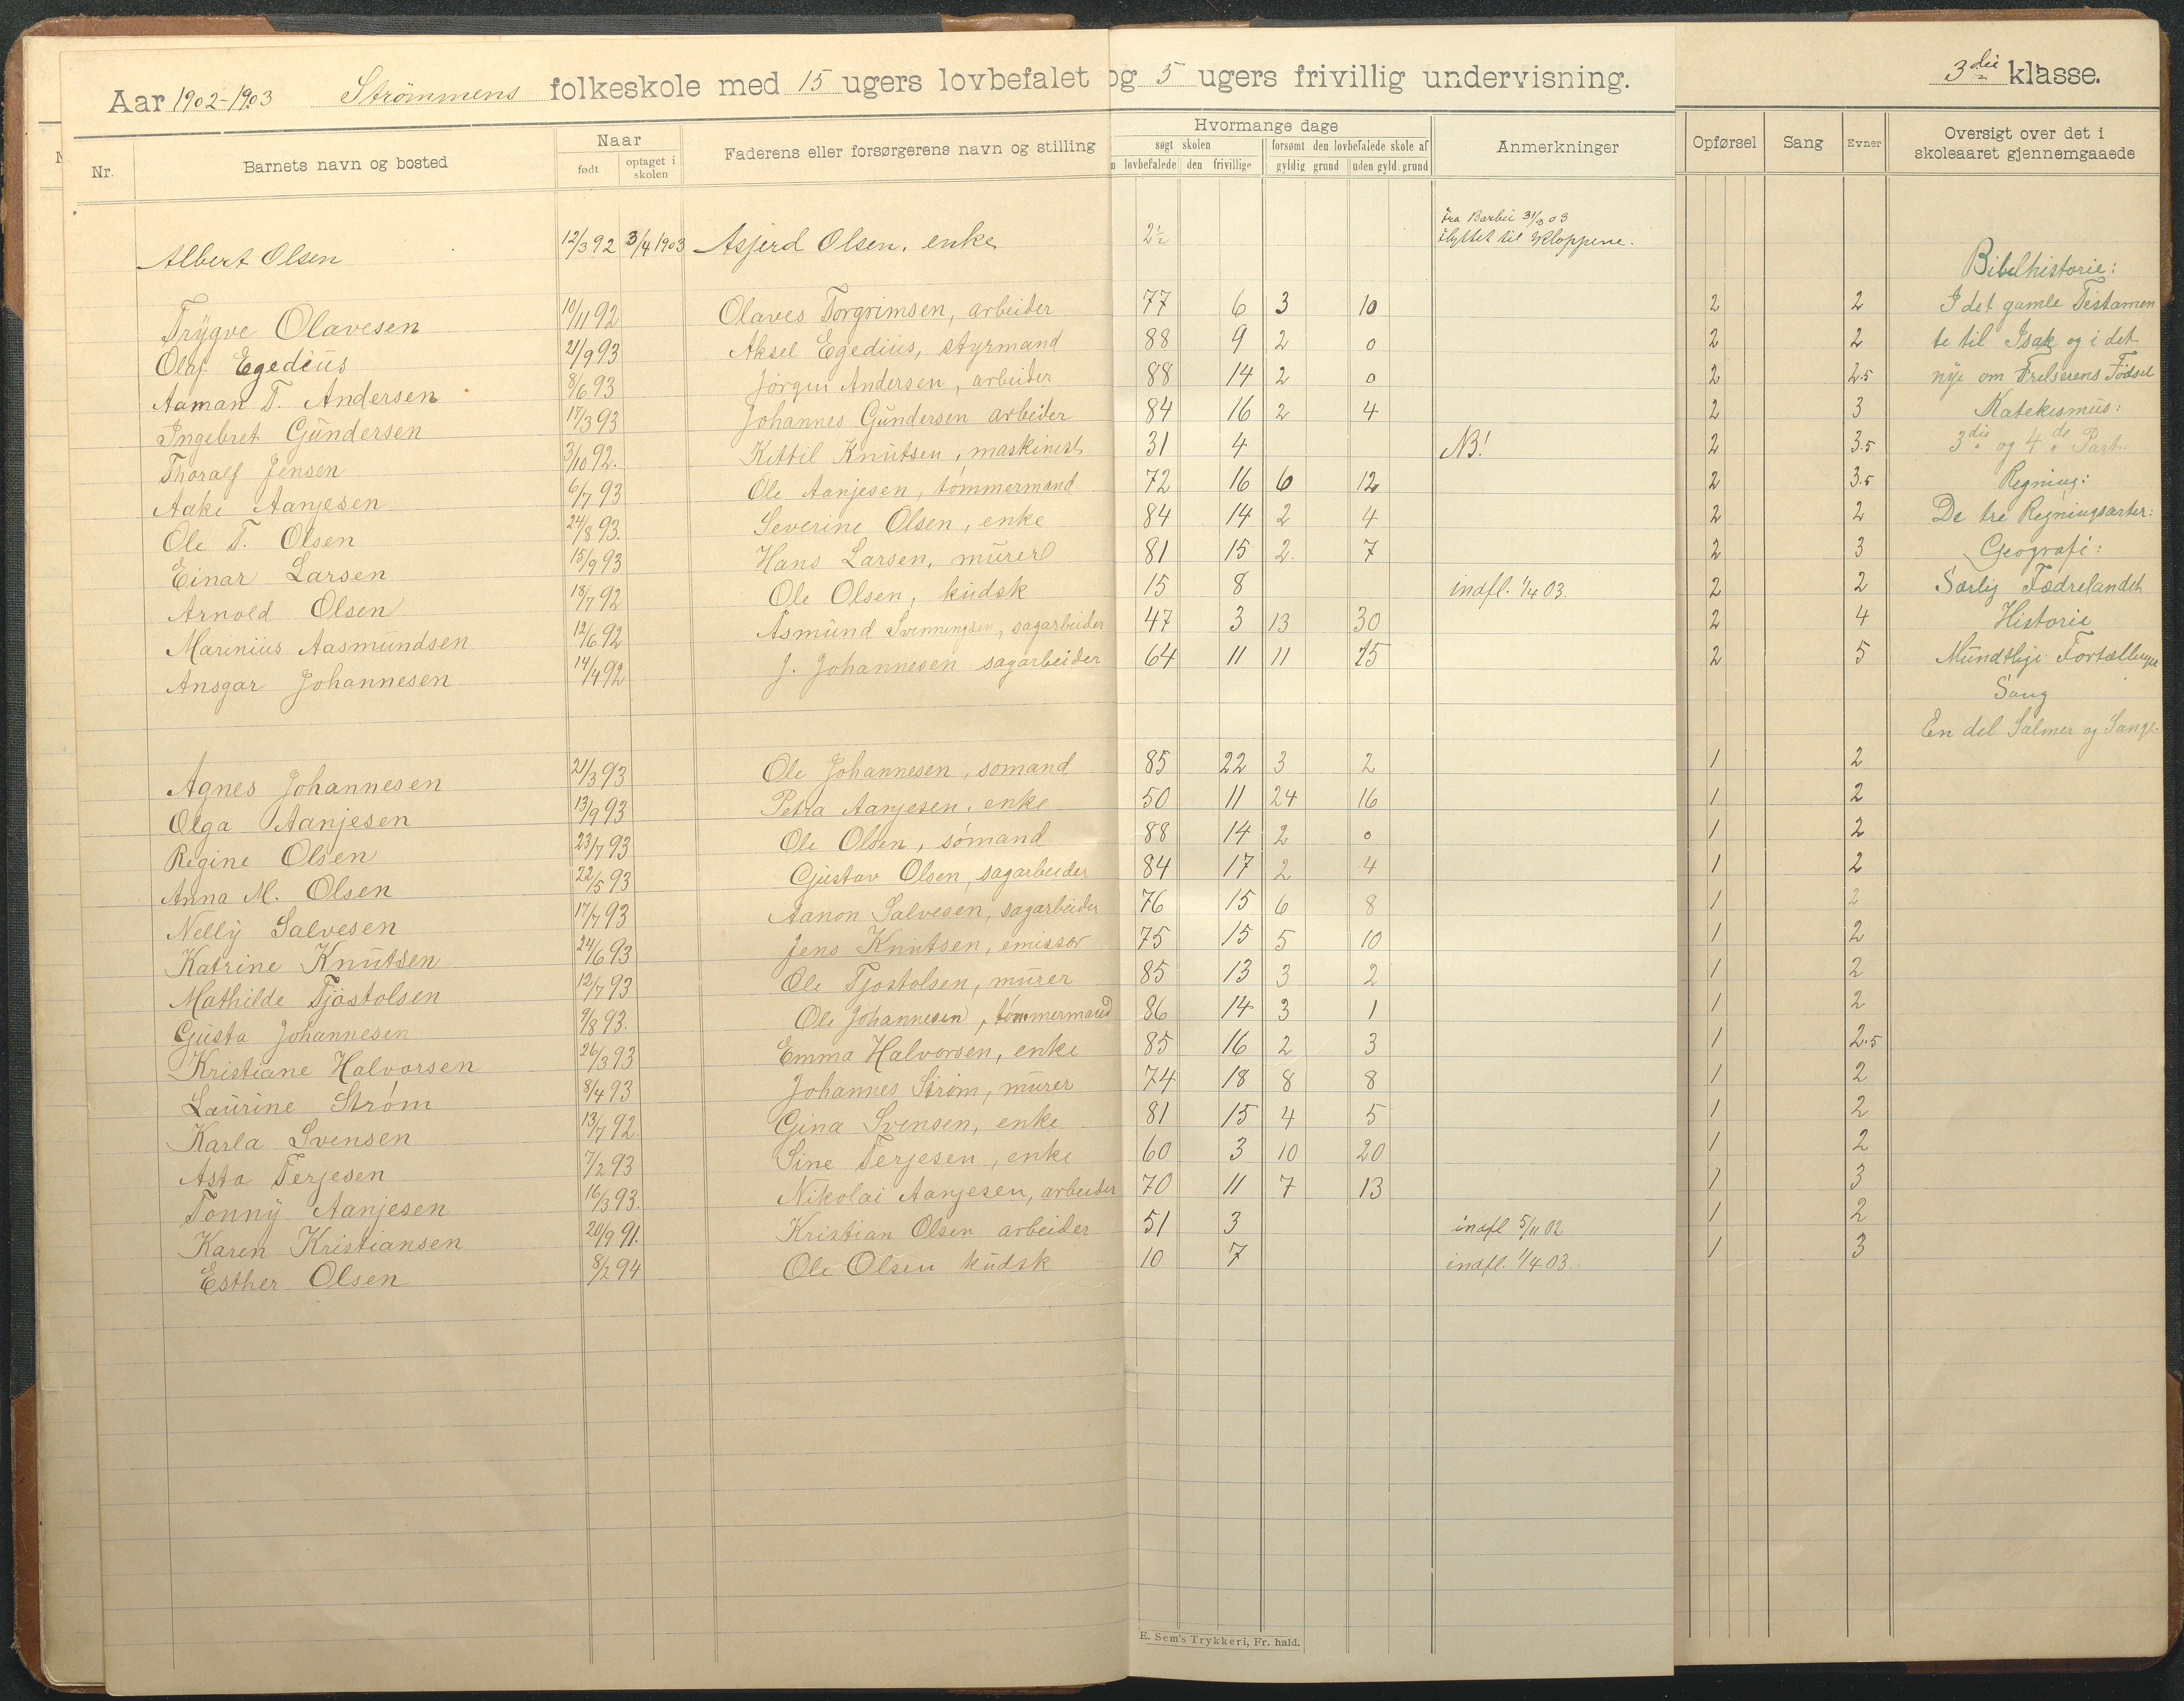 Aar 1902-1903 Strömmens folkeskole med 15 ugers lovbefalet og 5 ugers frivillig undervisning. 3die klasse.
Nr. Barnets navn og bosted Naar født optaget i skolen Faderens eller forsørgerens navn og stilling Hvormange dage søgt skolen n lovbefalede den frivillige forsømt den lovbefalede skole af gyldig grund uden gyld. grund Anmerkninger Opførsel Sang Evner Oversigt over det i skoleaaret gjennemgaaede
Albert Olsen 12/3 92 3/4 1903 Asjerd Olsen, enke 2½ fra Barbu 31/3 03 flyttet til Kloppene.
Bibelhistorie:
Trygve Olavesen 10/11 92 Olaves Torgrimsen, arbeider 77 6 3 10 2 2 I det gamle Testamen
Olaf Egedius 21/9 93 Aksel Egedius, styrmand 88 9 2 0 2 2 te til Isak og i det
Aaman T. Andersen 8/6 93 Jörgen Andersen, arbeider 88 14 2 0 2 2.5 nye om Frelserens Födsel
Ingebret Gundersen 17/3 93 Johannes Gundersen arbeider 84 16 2 4 2 3 Katekismus:
Thoralf Jensen 3/10 92. Kittil Knutsen, maskinist 31 4 NB! 2 3.5 3die og 4de Part.
Aake Aanjesen 6/7 93 Ole Aanjesen, tömmermand 72 16 6 12 2 3.5 Regning:
Ole T. Olsen 24/8 93. Severine Olsen, enke 84 14 2 4 2 2 De tre Regningsarter:
Einar Larsen 15/9 93 Hans Larsen, murer 81 15 2. 7 2 3 Geografi:
Arnold Olsen 18/7 92 Ole Olsen, kudsk 15 8 indfl. 1/4 03. 2 2 Særlig Fædrelandet
Marinius Aasmundsen 12/6 92 Asmund Svenningsen, sagarbeider 47 3 13 30 2 4 Historie
Ansgar Johannesen 14/4 92 J. Johannesen sagarbeider 64 11 11 15 2 5 Mundtlige Fortællinger
Sang
En del Salmer og Sange.
Agnes Johannesen 21/3 93 Ole Johannesen, sömand 85 22 3 2 1 2
Olga Aanjesen 13/9 93 Petra Aanjesen, enke 50 11 24 16 1 2
Regine Olsen 23/7 93 Ole Olsen, sömand 88 14 2 0 1 2
Anna M. Olsen 22/5 93 Gustav Olsen, sagarbeider 84 17 2 4 1 2
Nelly Salvesen 17/7 93 Aanon Salvesen, sagarbeider 76 15 6 8 1 2
Katrine Knutsen 24/6 93 Jens Knutsen, emissær 75 15 5 10 1 2
Mathilde Tjöstolsen 12/7 93 Ole Tjöstolsen, murer 85 13 3 2 1 2
Gusta Johannesen 9/8 93. Ole Johannesen, tömmermand 86 14 3 1 1 2
Kristiane Halvorsen 26/3 93 Emma Halvorsen, enke 85 16 2 3 1 2.5
Laurine Ström 8/4 93 Johannes Ström, murer 74 18 8 8 1 2
Karla Svensen 13/7 92. Gina Svensen, enke 81 15 4 5 1 2
Asta Terjesen 7/2 93 Sine Terjesen, enke 60 3 10 20 1 2
Tonny Aanjesen 16/3 93. Nikolai Aanjesen, arbeider 70 11 7 13 1 3
Karen Kristiansen 20/9 91. Kristian Olsen arbeider 51 3 indfl 5/11 02 1 2
Esther Olsen 8/2 94 Ole Olsen kudsk 10 7 indfl. 1/4 03. 1 3
E. Sem's Trykkeri, Fr. hald.